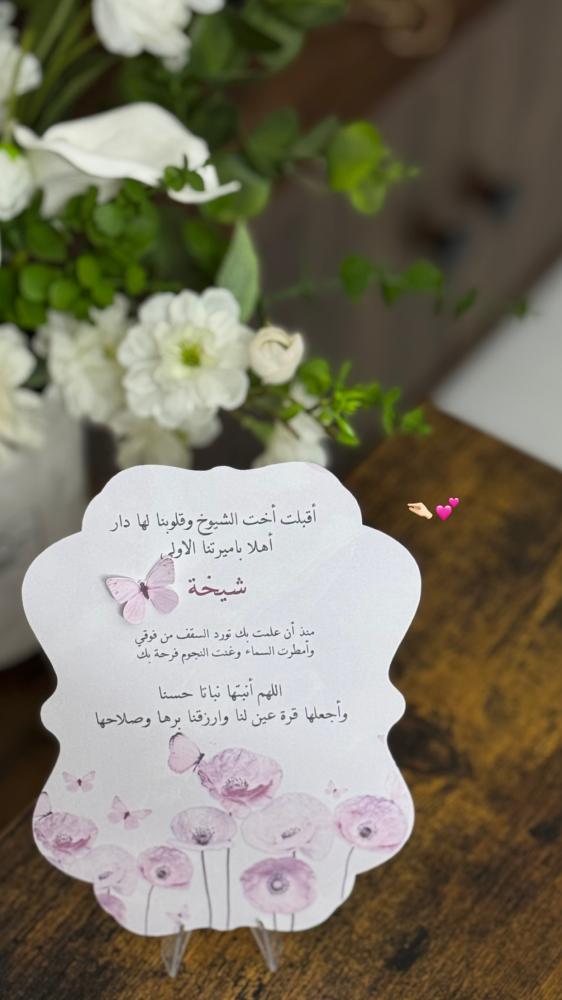 أقبلت أخت الشيوخ وقلوبنا لها دار
أهلا باميرتنا الاولى
شيخة
منذ أن علمت بك تورد السقف من فوقي
وأمطرت السماء وغنت النجوم فرحة بك
اللهم أنبتها نباتا حسنا
وأجعلها قرة عين لنا وارزقنا برها وصلاحها